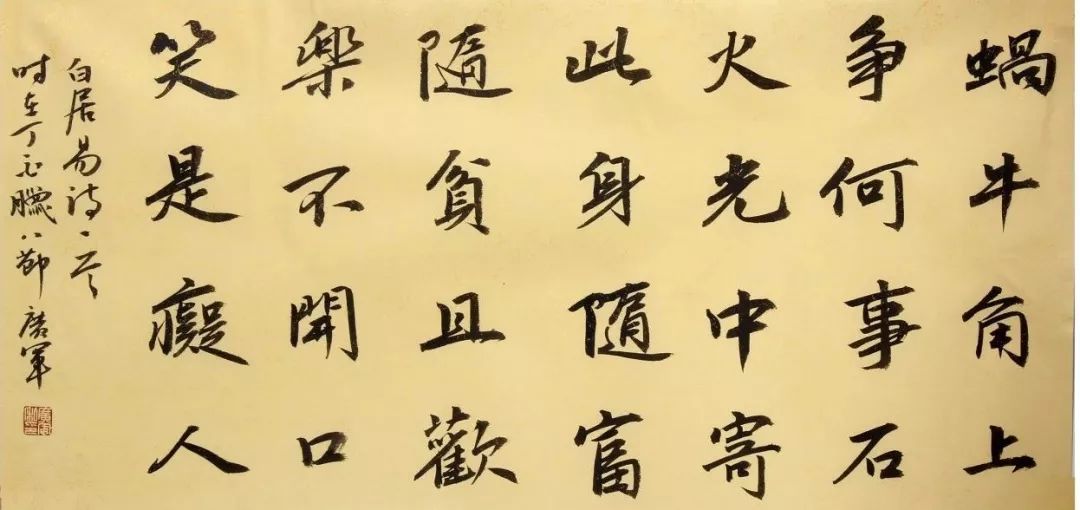 蝸牛角上
争何事石
火光中寄
此身隨富
隨貧且歡
樂不開口
笑是癡人
白居易詩一首
时在丁酉臘八節 唐軍